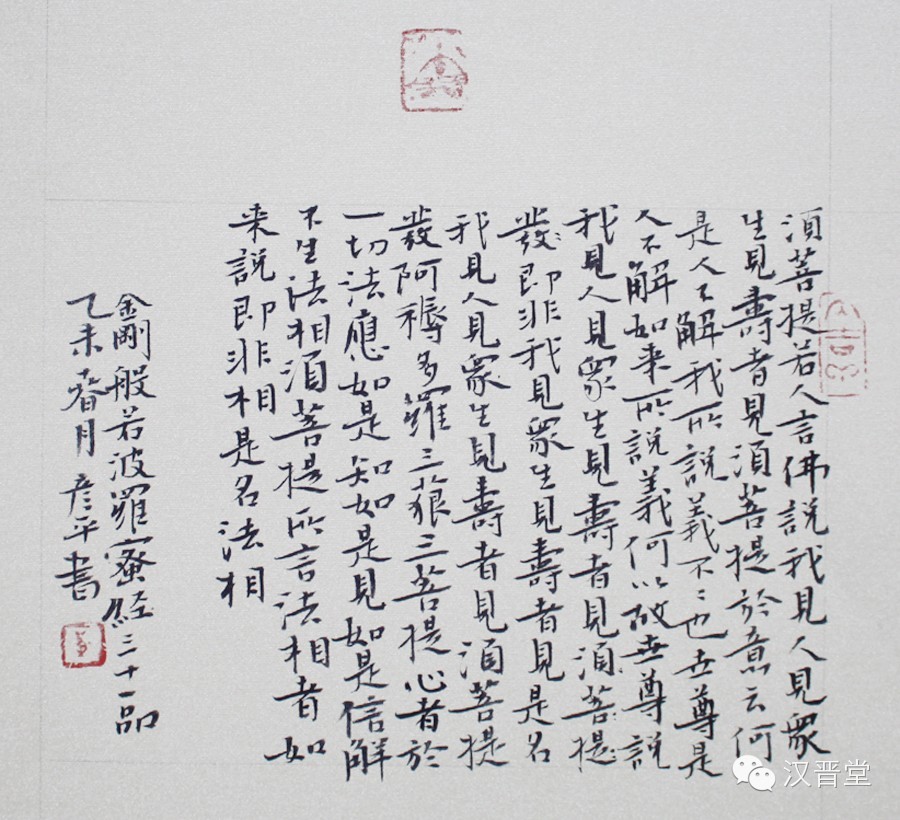 須菩提若人言佛說我見人見眾
生見壽者見須菩提於意云何
是人不解我所說義不〻也世尊是
人不解如来所說義何以故世尊說
我見人見眾生見壽者見須菩提
發即非我見眾生見壽者見是名
我見人見眾生見壽者見須菩提
發阿耨多羅三藐三菩提心者於
一切法應如是知如是見如是信解
不生法相須菩提所言法相者如
来說即非相是名法相
金剛般若波羅蜜經三十一品
乙未春月彦平書
汉晋堂